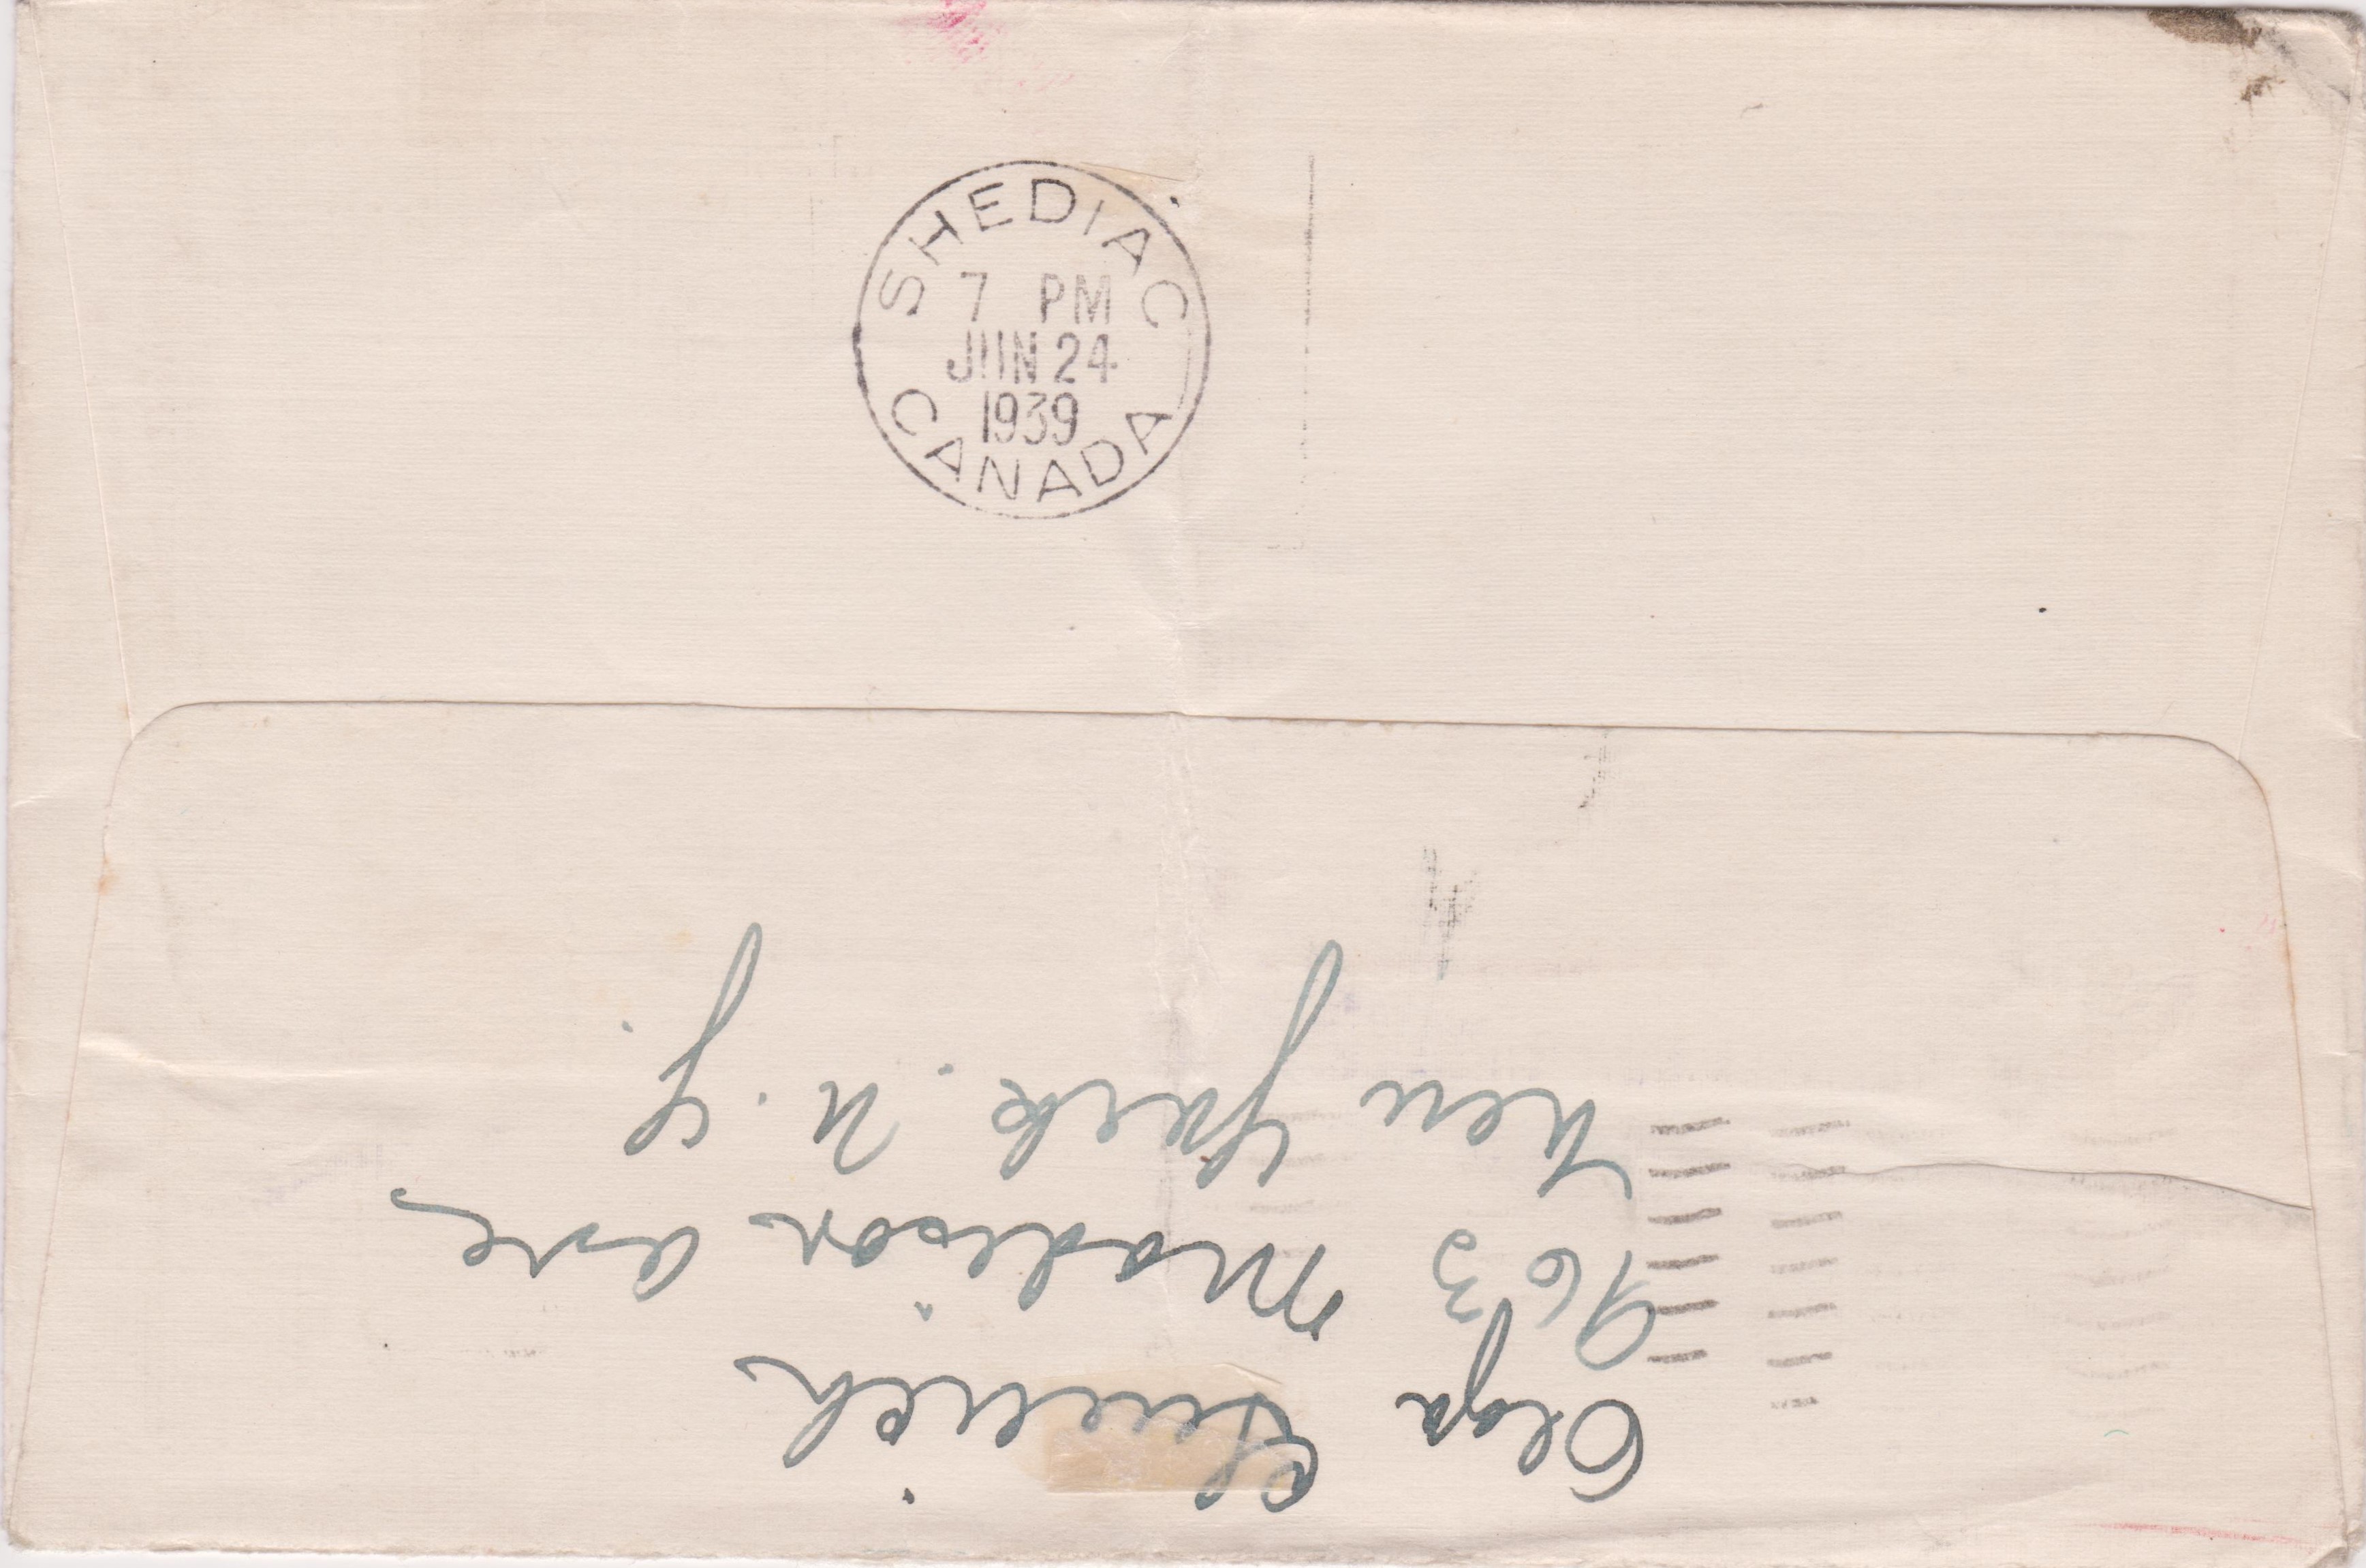 SHEDIAC
7 PM
JUN 24
1939
CANADA
Olga
963 Madison ave
New York. N.Y.